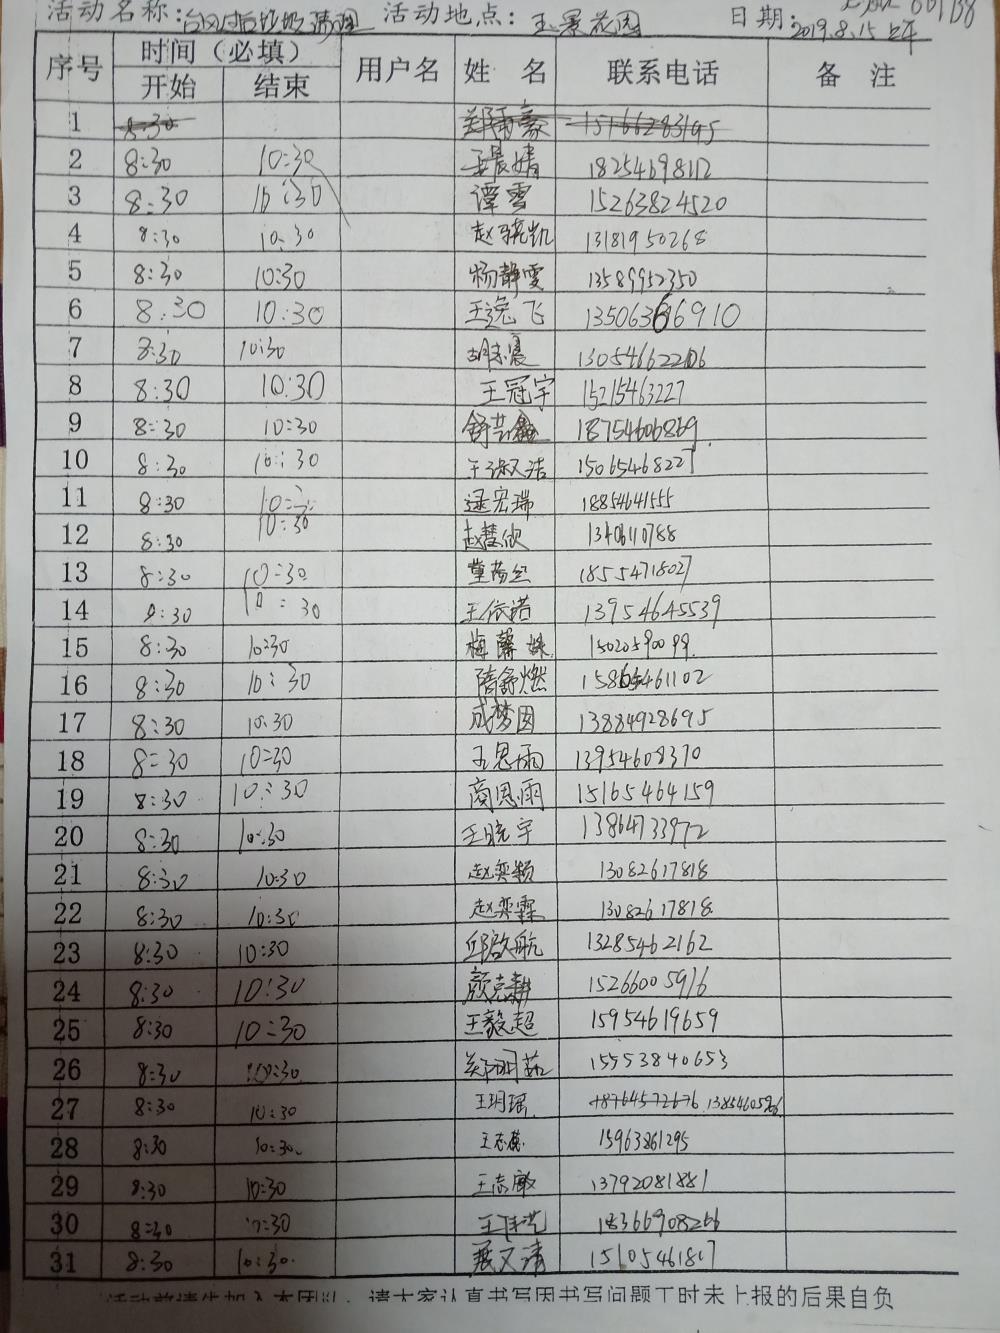 活动名称：台风过后垃圾清理 活动地点：玉景花园 日期：2019.8.15 上午
序号 时间（必填） 用户名 姓 名 联系电话 备 注
开始 结束
1 8:30 15166283195
2 8:30 10:30 孟晨婧 18254698112
3 8:30 10:30 谭雯 15263824520
4 8:30 10:30 赵晓凯 13181950268
5 8:30 10:30 杨静雯 13589952350
6 8:30 10:30 王逸飞 13506366910
7 8:30 10:30 13054662206
8 8:30 10:30 王冠宇 15215463227
9 8:30 10:30 舒芸鑫 18754606869
10 8:30 10:30 王淑洁 15065468227
11 8:30 10:30 逯宏瑞 18854641555
12 8:30 10:30 赵慧欣 13406110788
13 8:30 10:30 18554718027
14 8:30 10:30 王依诺 13954645539
15 8:30 10:30 梅馨姝 15020590099
16 8:30 10:30 隋舒燃 15865461102
17 8:30 10:30 成梦圆 13884928695
18 8:30 10:30 王思雨 13954608370
19 8:30 10:30 商恩雨 15165464159
20 8:30 10:30 王晓宇 13864733972
21 8:30 10:30 赵奕颖 13082617818
22 8:30 10:30 赵奕霖 13082617818
23 8:30 10:30 邱啟航 13285462162
24 8:30 10:30 颜克耕 15266005916
25 8:30 10:30 王毅超 15954619659
26 8:30 10:30 郑明茹 15553840653
27 8:30 10:30 王玥瑶 18764572676
28 8:30 10:30 王志蕊 15963861295
29 8:30 10:30 王志敏 13792081881
30 8:30 10:30 18366908266
31 8:30 10:30 15105461817
活动前请先加入本团队，请大家认真书写因书写问题工时未上报的后果自负